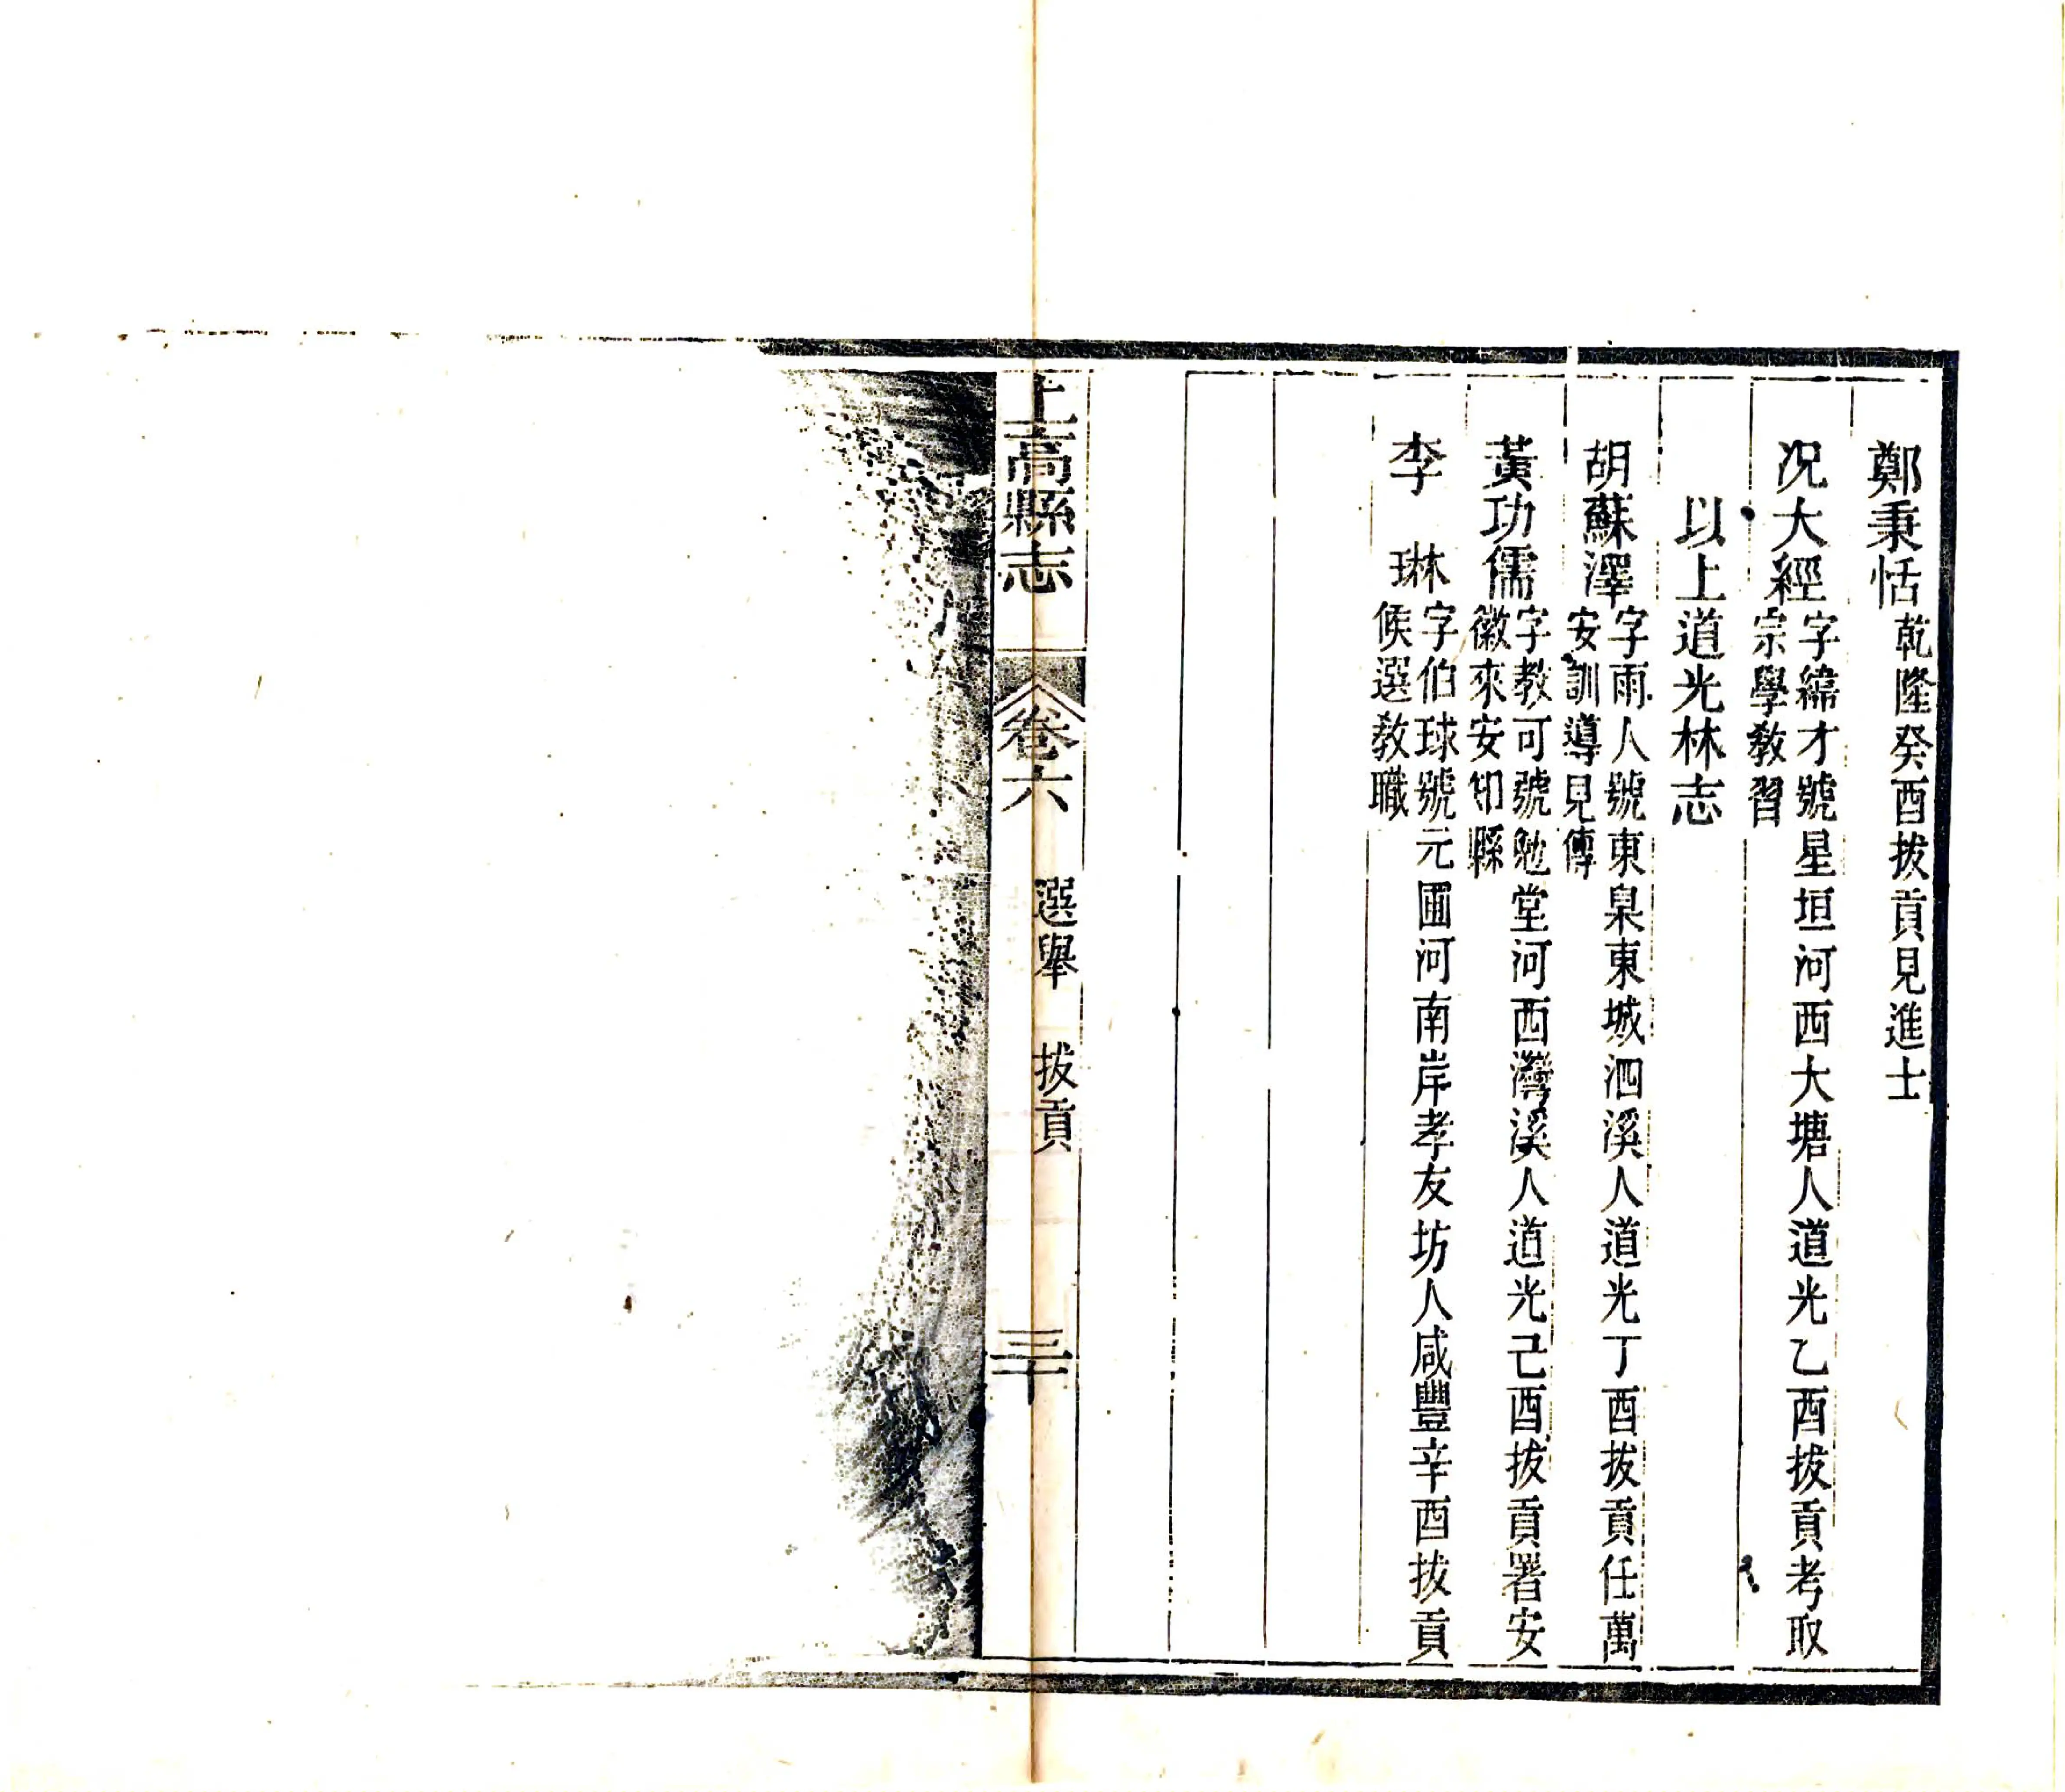 鄭秉恬乾隆癸酉拔貢見進士
况大經字緯才號星垣河西大塘人道光乙酉拔貢考取
宗學教習
以上道光林志
胡蘇澤字雨人號東臯東城泗溪人道光丁酉拔貢任萬
安訓導見傳
黃功儒字教可號勉堂河西灣溪人道光己酉拔貢署安
徽來安知縣
李琳字伯球號元圃河南岸孝友坊人咸豐辛酉拔貢
候選敎職
上高縣志
卷六
選舉
拔貢
三十